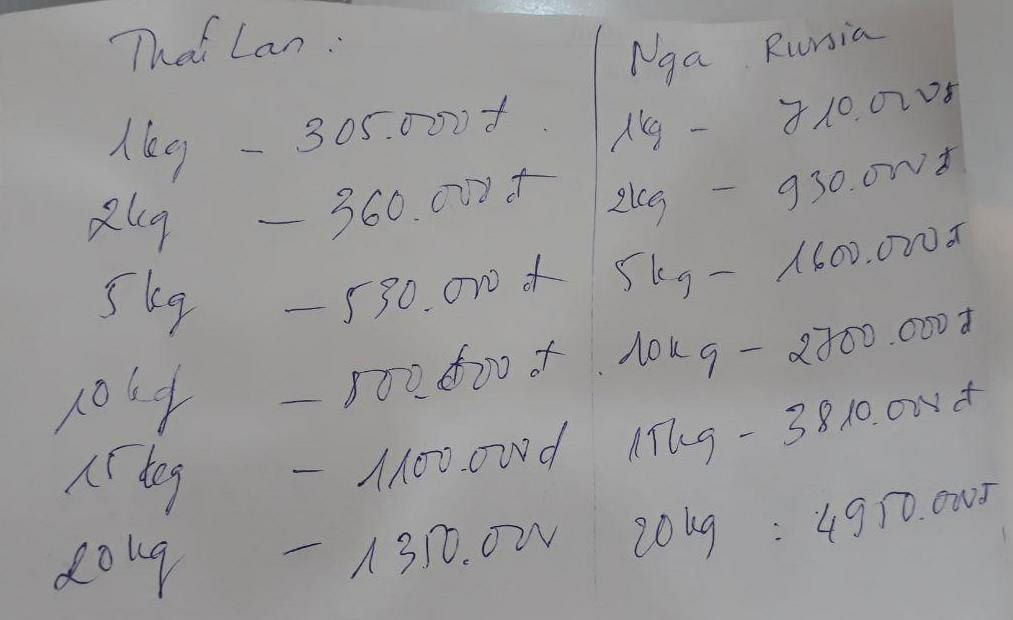 Thái Lan :
1kg – 305.000đ .
2kg – 360.000đ
5kg – 530.000đ
10kg – 800.000đ
15kg – 1100.000đ
20kg – 1350.000
Nga Russia
1kg – 710.000đ
2kg – 930.000đ
5kg – 1600.000đ
10kg – 2700.000đ
15kg – 3810.000đ
20kg : 4950.000đ